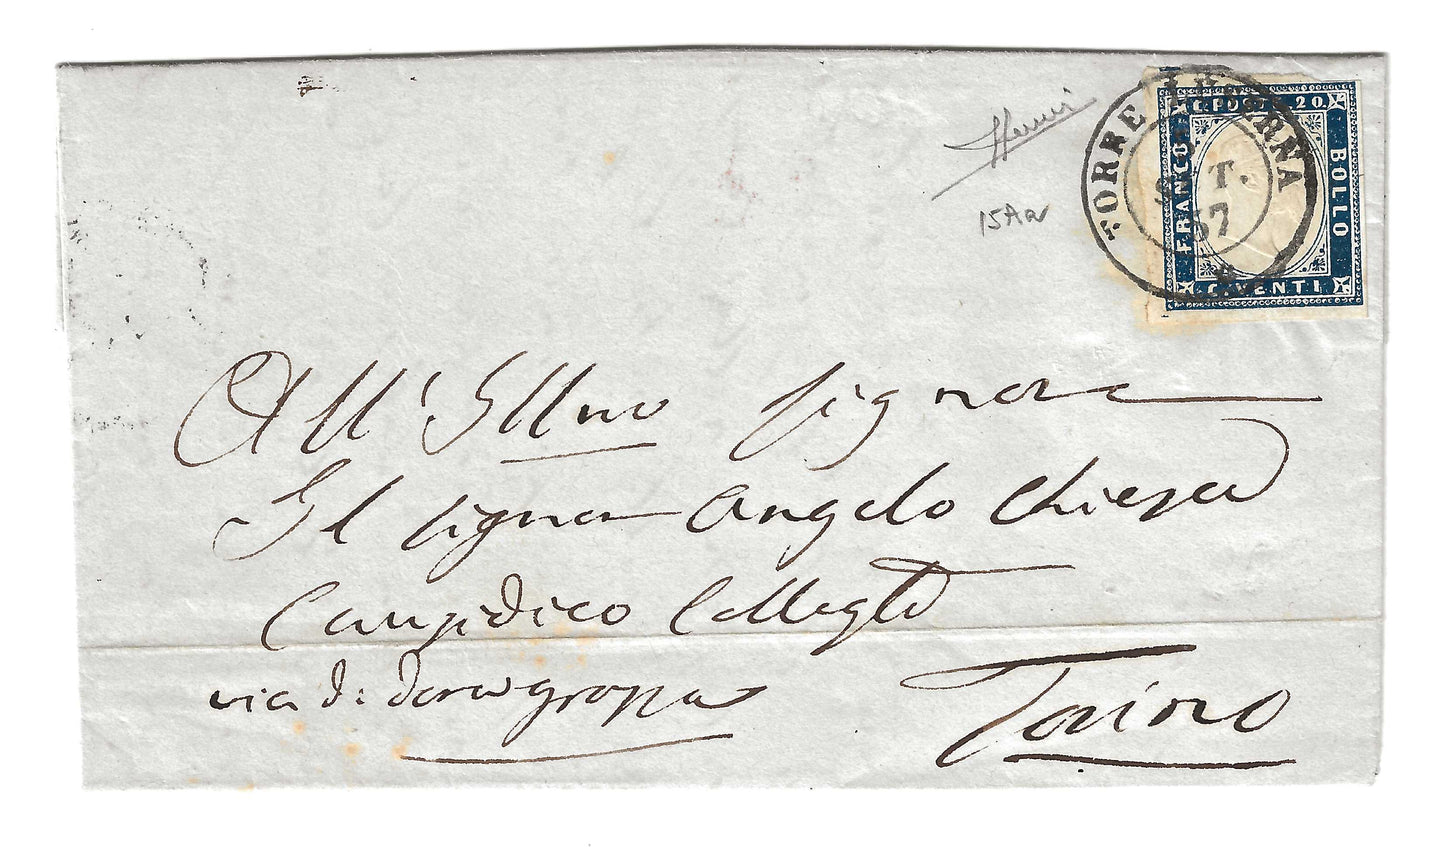 15Aa
TORRE LUSERNA
SET.
57
C. POSTE 20.
FRANCO
BOLLO
C. VENTI
All' Illmo Signore
Il Signor Angelo Chiesa
Causidico Collegto
via di doragrossa
Torino